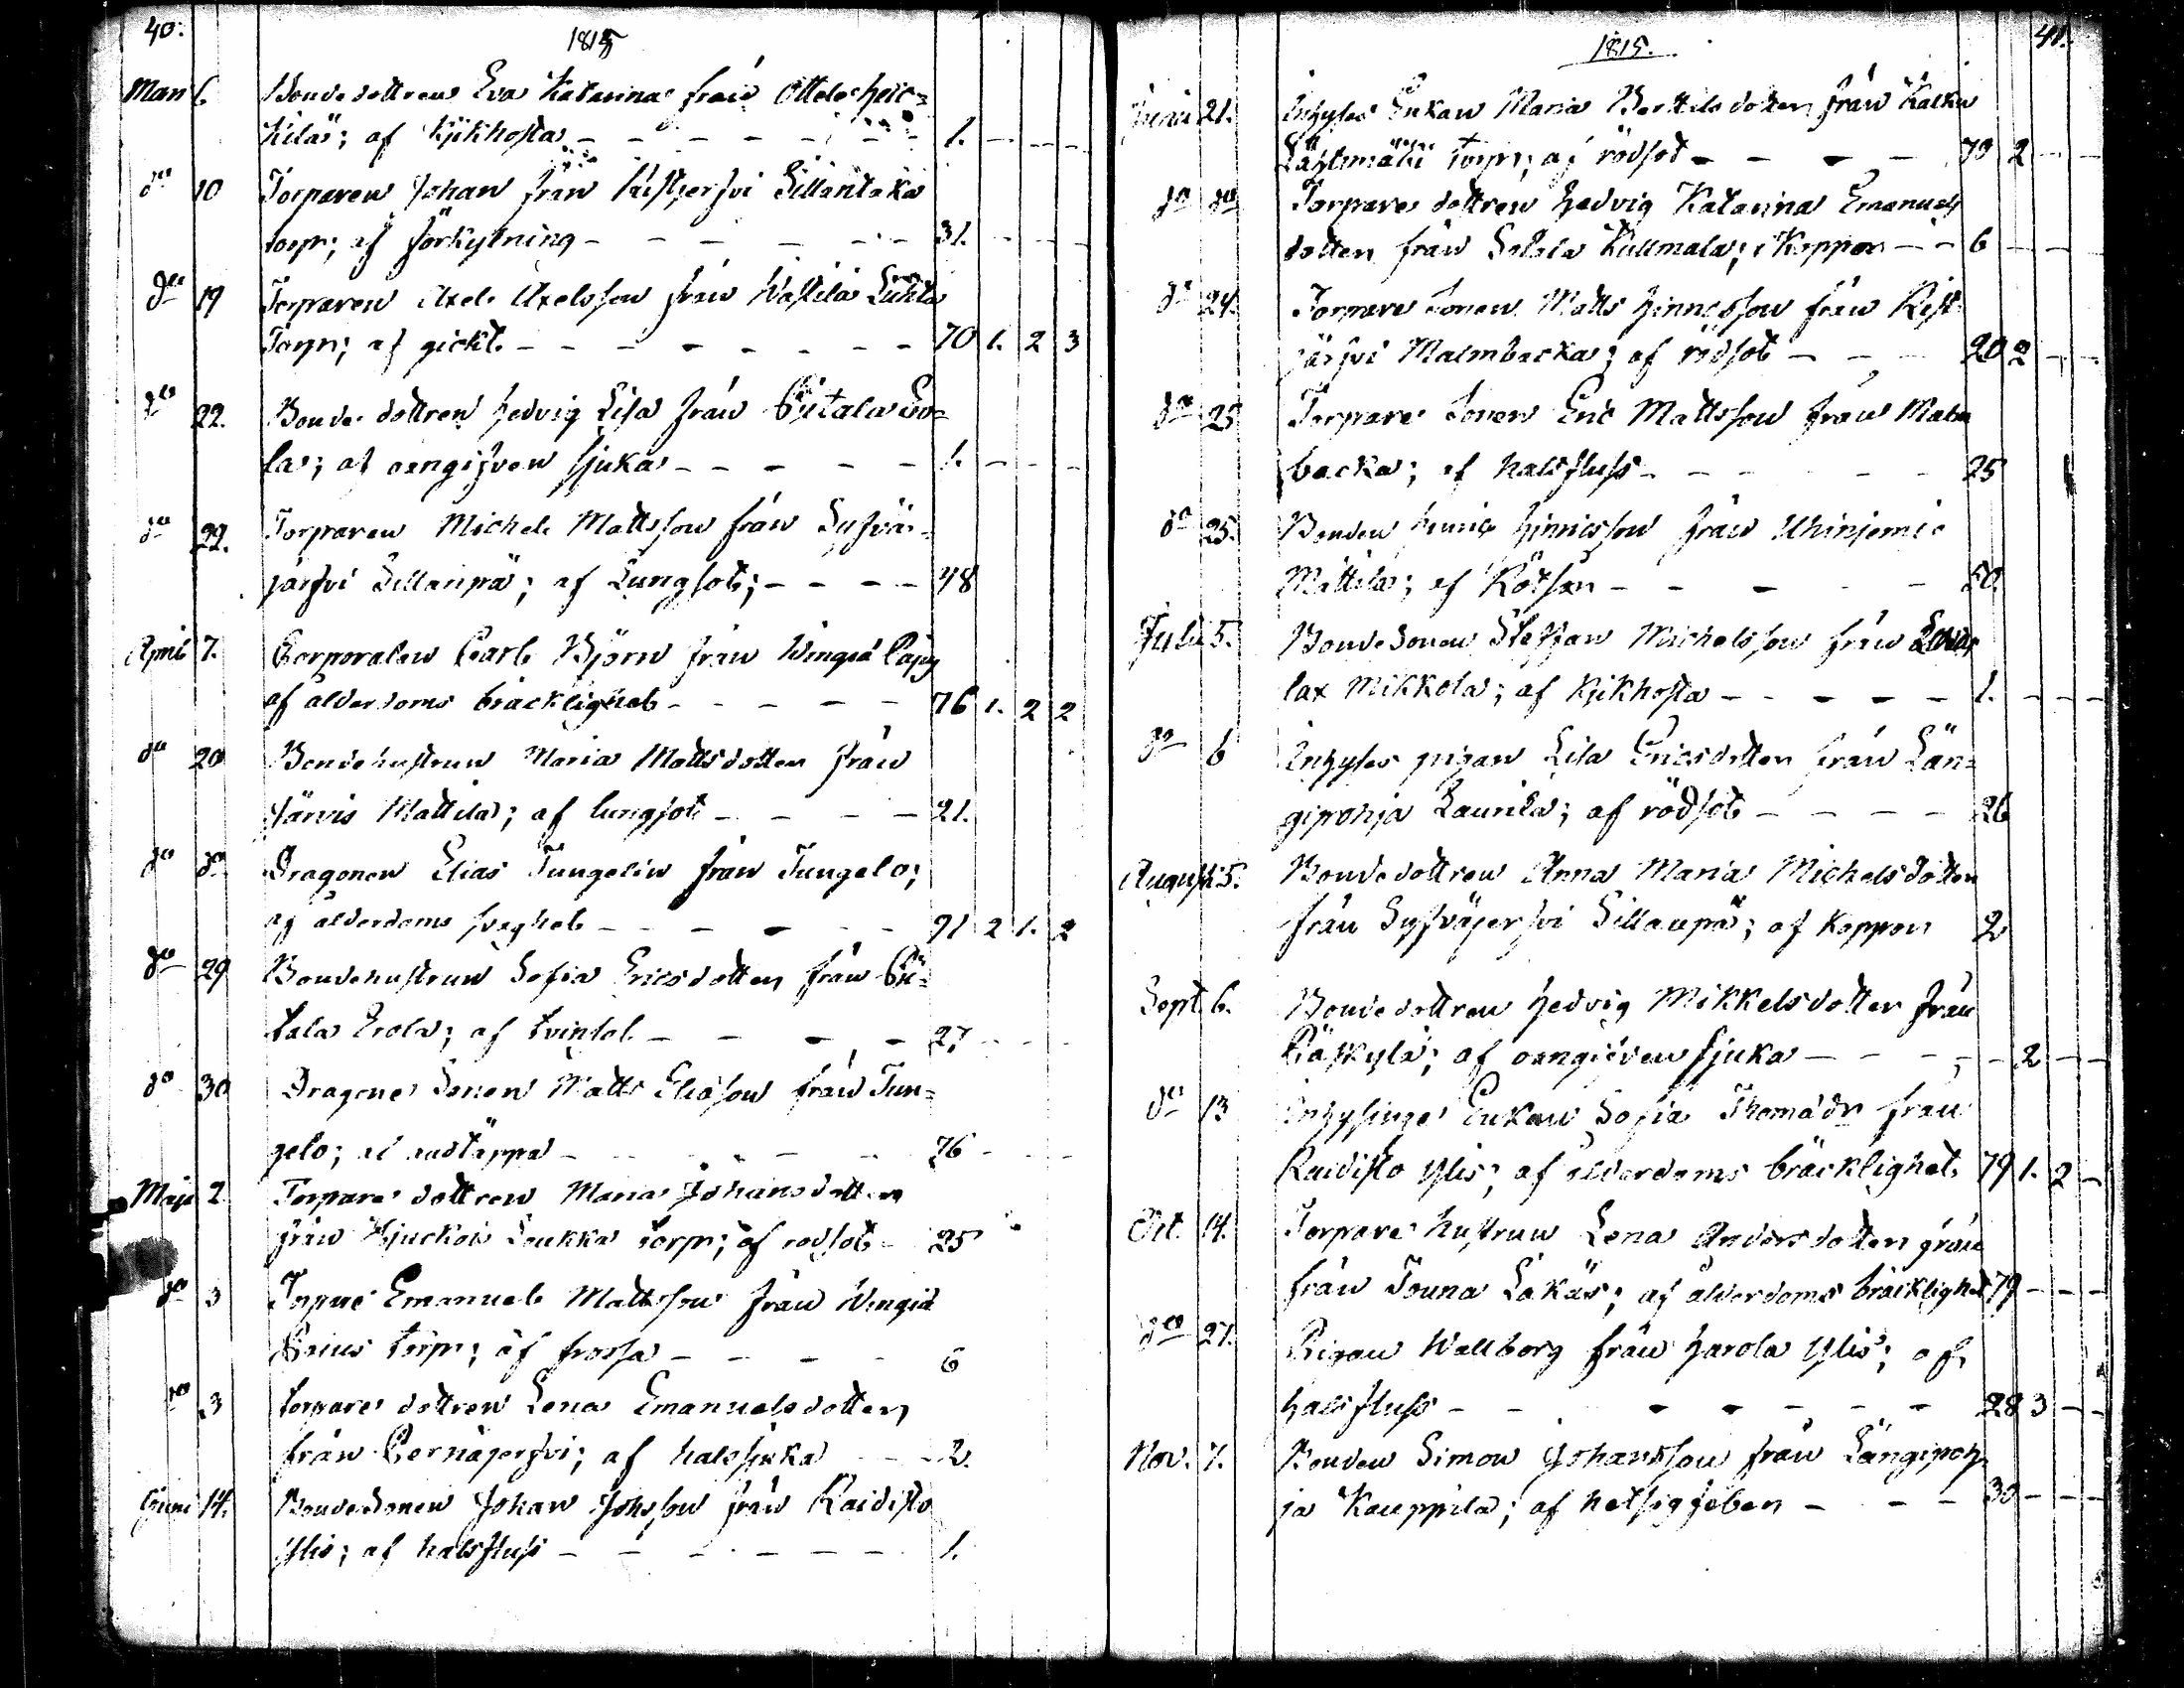 40.
1815
Mart 6. Bonde dottren Eva Katarina från Ottela Heic=
kilä; af Kjikhosta - - - - - - - 1. - - -
do 10 Torparen Johan från Ristjerfvi Sillantaka
torp; af förkylning - - - - - - 31. - - -
do 19 Torparen Axel Axelsson från Wastila Suhta
Torp; af gickt - - - - - - - - 70 1. 2 3
do 22. Bonde dottren Hedvig Lisa från Pútala So=
la; af oangifven sjuka - - - - - 1. - - -
do 22. Torparen Michel Mattsson från Syfvä-
järfvi Sillanpä; af Lungsot; - - - - 48
April 7. Corporalen Carl Björn från Wingiä
af ålderdoms bräcklighet - - - - - 76 1. 2 2
do 20 Bondehustrun Maria Mattsdotter från
Järvis Mattila; af lungsot - - - - 21.
do do Dragonen Elias Tungelin från Tungelo;
af ålderdoms svaghet - - - - - - 91 2 1. 2
do 29 Bondehustrun Sofia Ericsdotter från Pú=
tala Erola; af tvinsot - - - - 27 - - -
do 30 Dragone Sonen Matts Eliasson från Tun=
gelo; af andtäppa - - - - - - 76 - - -
Maji 2 Torpare dottren Maria Johansdotter
från Kjuckois Loukka torp; af rodsot - 25
do 3 Emanuel Mattsson från Wingiä
torp; af frossa - - - - 6
do 3 torpare dottren Lena Emanuelsdotter
från Pernäjerfvi; af halssjuka - - 2.
Juni 14. Bondesonen Johan Johsson från Raidisto
Ylis; af halsfluss - - - - - - - 1.
41.
1815.
Junii 21. Inhyses Enkan Maria Bertilsdotter från Kalku
Lähtmäki torp; af rödsot - - - - 70 2 - -
do do Torpare dottren Hedvig Katarina Emanuels
dotter från Sokola Kullmala; i Koppor - - 6 - -
do 24. Torpare Sonen Matts Hinricsson från Rist-
järfvi Malmbacka; af rödsot - - - 20 2 - -
do 25 Torpare Sonen Eric Mattsson från Malm
backa; af halsfluss - - - - - - 25
do 25. Bonden Henric Hinricsson från Uhinjemi
Mattila; af Rötsår - - - - - 50.
Julii 5. Bondesonen Steffan Michelsson från
lax Mikkola; af Kjikhosta - - - - - 1. - - -
do 6 Inhyses pigan Lisa Ericsdotter från Län=
gipohja Laurila; af rödsot - - - - 26
August 5. Bondedottren Anna Maria Michelsdotter
från Syfväjerfvi Sillanpä; af Koppor 2
Sept. 6. Bondedottren Hedvig Mikkelsdotter från
Päskylä; af oangifven sjuka - - - - - 2 - -
do 13 Inhysinge Enkan Sofia Thomädr från
Raidisto Ylis; af ålderdoms bräcklighet. 79 1. 2 -
Oct. 14. Torpare hustrun Lena Andersdotter från
från Jouna Lakäs; af ålderdoms bräcklighet. 79 - - -
do 27. Pigan Wallborg från Harola Ylis; af
halsfluss - - - - - - - 28 3 - -
Nov. 7. Bonden Simon Johansson från Längipoh
ja Kauppila; af hetsig feber - - - 30 - - -